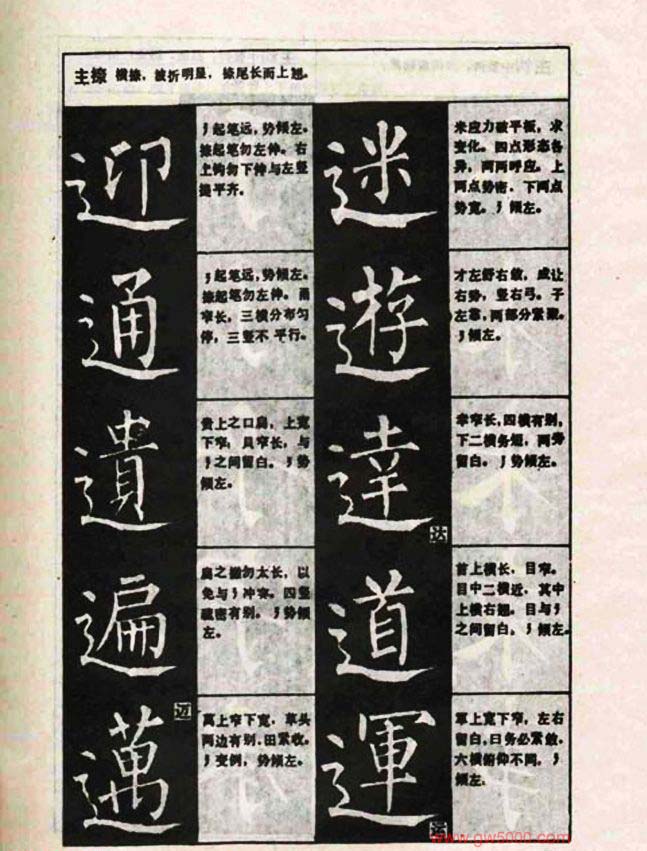 主捺 横捺，波折明显，捺尾长而上翘。
迎
起笔远，势倾左。
捺起笔勿左伸。右
上钩勿下伸与左竖
提平齐。
迷
米应力破平板，求
变化。四点形态各
异，两两呼应。上
两点势密，下两点
势宽。倾左。
通
起笔远，势倾左。
捺起笔勿左伸。甬
窄长，三横分布匀
停，三竖不 平行。
遊
才左舒右敛，成让
右势，竖右弓。子
左靠，两部分紧聚。
倾左。
遺
贵上之口扁，上宽
下窄，贝窄长，与
之间留白。势
倾左。
達
达
幸窄长，四横有别，
下二横务短，两旁
留白。势倾左。
遍
扁之撇勿太长，以
免与冲突。四竖
疏密有别。势倾
左。
道
首上横长，目窄。
目中二横近，其中
上横右翘。目与
之间留白。倾左。
邁
迈
萬上窄下宽，草头
两边有别，田紧收。
变例，势倾左。
運
运
軍上宽下窄，左右
留白，曰务必紧敛。
六横俯仰不同。
倾左。
www.gw5000.com